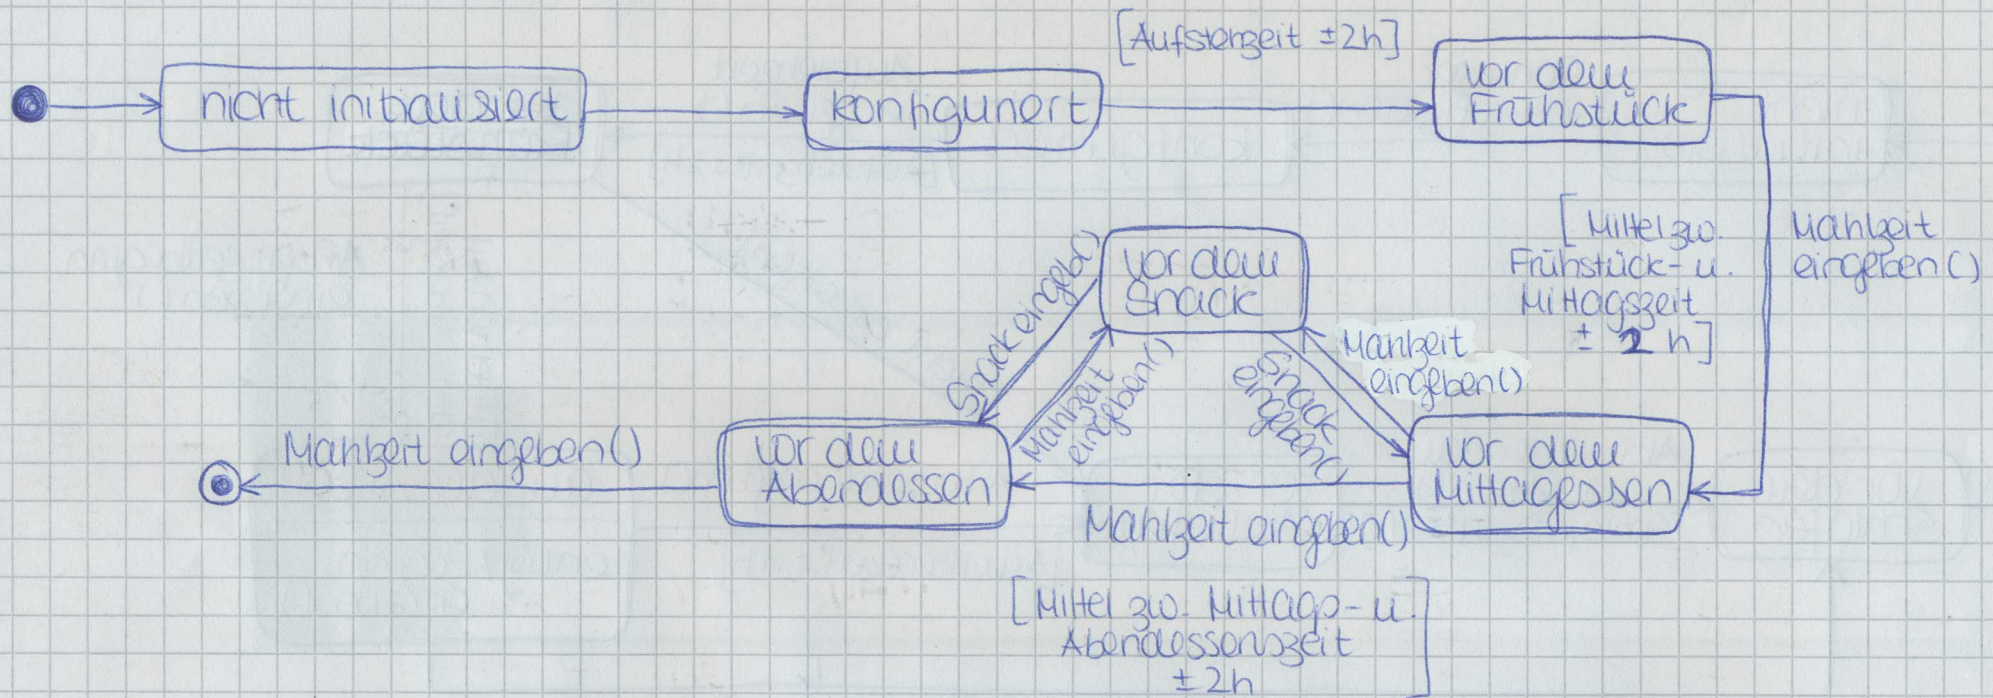 [Aufstehzeit ±2h]
nicht initialisiert
konfiguriert
vor dem
Frühstück
[Mittel zw.
Frühstück- u.
Mittagszeit
± 2 h]
Mahlzeit
eingeben()
vor dem
Snack
Snack eingeb()
Mahlzeit
eingeben()
Snack
eingeben()
Mahlzeit
eingeben()
Mahlzeit eingeben()
vor dem
Abendessen
vor dem
Mittagessen
Mahlzeit eingeben()
[Mittel zw. Mittags- u.
Abendessenszeit
± 2h
]